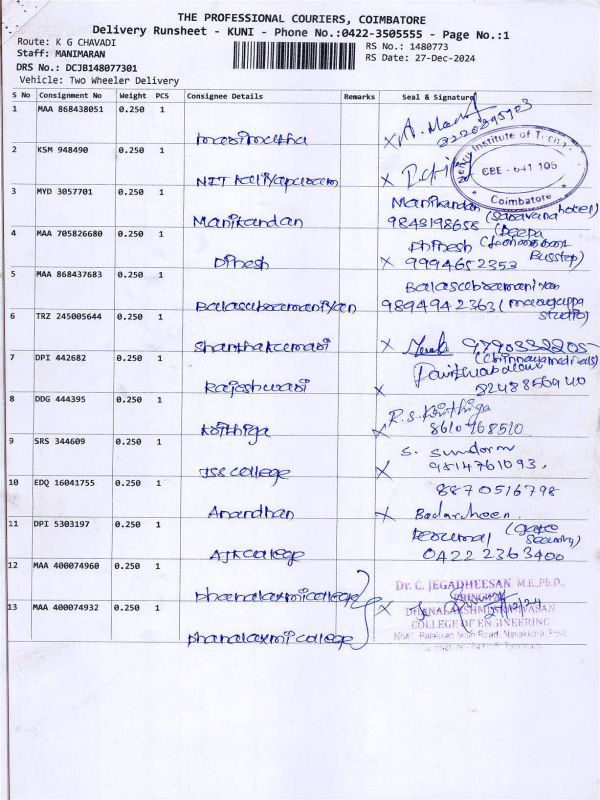 THE PROFESSIONAL COURIERS, COIMBATORE
Delivery Runsheet - KUNI - Phone No.:0422-3505555 - Page No.:1
Route: K G CHAVADI
RS No.: 1480773
Staff: MANIMARAN
RS Date: 27-Dec-2024
DRS No.: DCJB148077301
Vehicle: Two Wheeler Delivery
S No Consignment No Weight PCS Consignee Details Remarks Seal & Signature
1 MAA 868438051 0.250 1
2 KSM 948490 0.250 1
Institute of
CBE - 641 105
Coimbatore
3 MYD 3057701 0.250 1 Manikandan
Manikandan (Saravana hotel)
9843198658
4 MAA 705826680 0.250 1 Dinesh
Dhinesh
Busstop)
x 9994652353
5 MAA 868437683 0.250 1 Balasubramaniyan
Balasubramaniyan
9894942363
studio)
6 TRZ 245005644 0.250 1 Shanthakumari
x 9790332205
(Chinnaya medicals)
7 DPI 442682 0.250 1 Rajeshwari
x
8 DDG 444395 0.250 1 Keithiga
R.S. Keithiga
x 8610768510
9 SRS 344609 0.250 1 JSS college
S. Sundorm
x 9814761093.
10 EDQ 16041755 0.250 1 Anandhan
8870516798
x
11 DPI 5303197 0.250 1 AJK college
Perumal (Gate Security)
0422 2363400
12 MAA 400074960 0.250 1 Dhanalaxmi college
Dr. C. JEGADHEESAN M.E.,Ph.D.,
PRINCIPAL
13 MAA 400074932 0.250 1 Dhanalaxmi college
x
DHANALAKSHMI SRINIVASAN
COLLEGE OF ENGINEERING
Palakkad Main Road, Navakkarai Post,